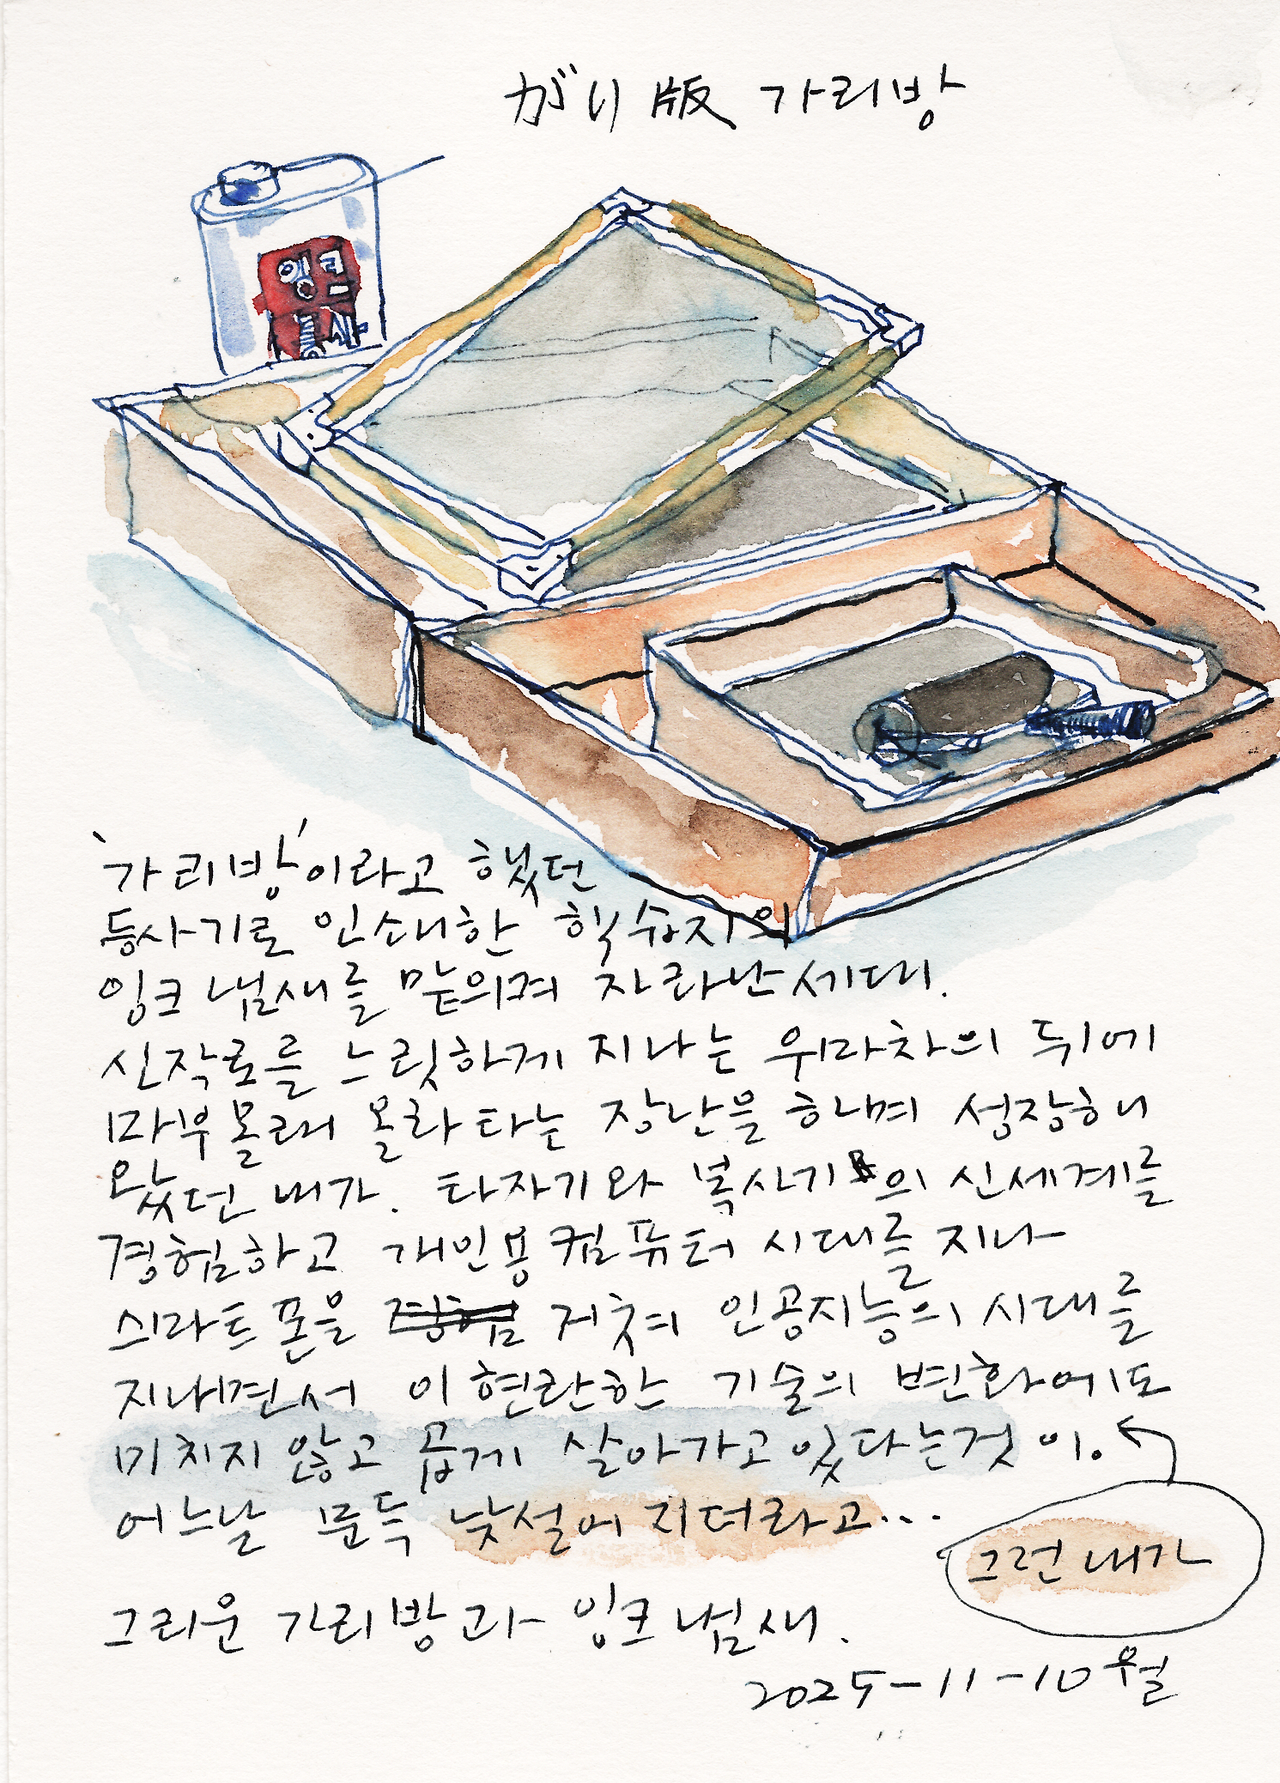 がり版 가리방
'가리방'이라고 했던
등사기로 인쇄한 학습지의
잉크 냄새를 맡으며 자라난 세대.
신작로를 느릿하게 지나는 우마차의 뒤에
마부 몰래 올라타는 장난을 하며 성장해
왔던 내가. 타자기와 복사기의 신세계를
경험하고 개인용 컴퓨터 시대를 지나
스마트폰을 거쳐 인공지능의 시대를
지내면서 이 현란한 기술의 변화에도
미치지 않고 곱게 살아가고 있다는것 이.
어느날 문득 낯설어 지더라고...
그런 내가
그리운 가리방과 잉크 냄새.
2025-11-10 월